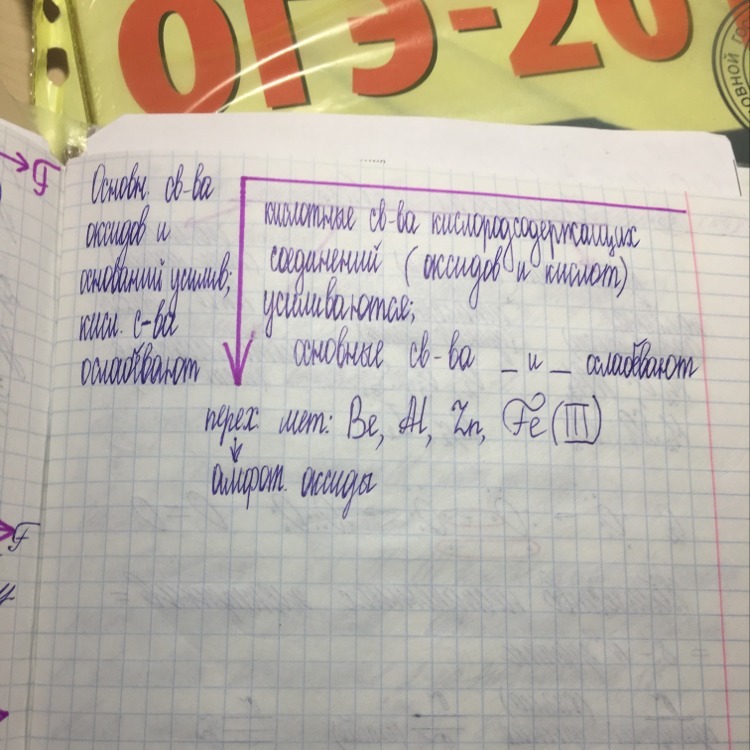 ОГЭ-20
F
Основн. св-ва
оксидов и
оснований усилив;
кисл. с-ва
ослабевают
кислотные св-ва кислородсодержащих
соединений (оксидов и кислот)
усиливаются;
основные св-ва _ и _ ослабевают
перех. мет: Be, Al, Zn, Fe (III)
амфот. оксиды
F